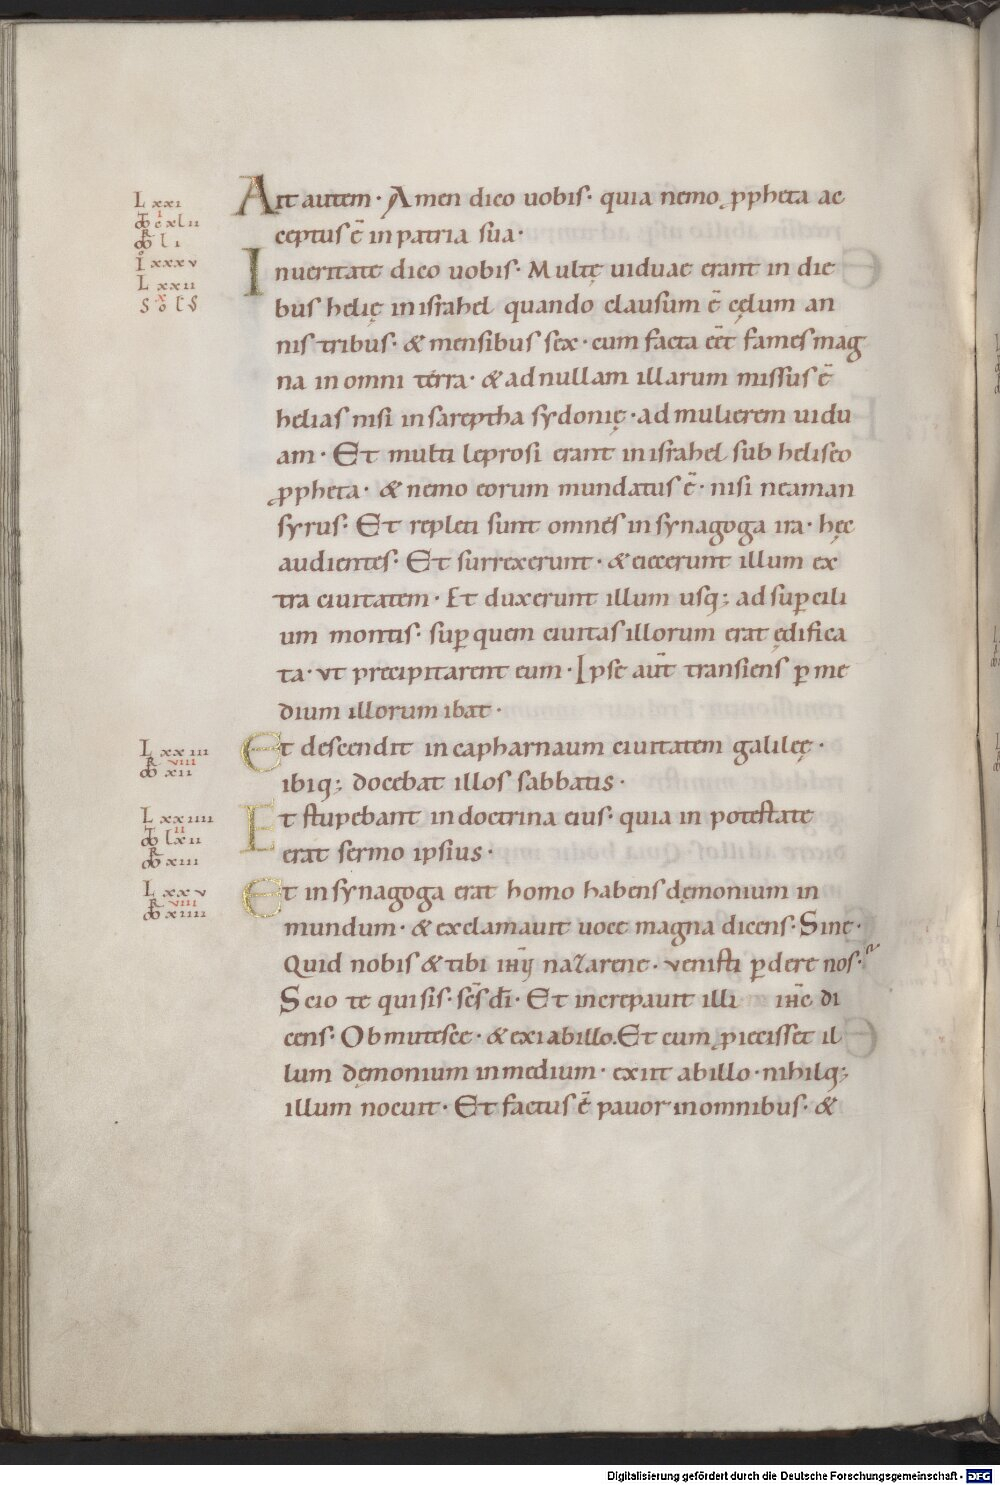 L xxi
Ait autem · Amen dico uobis · quia nemo ꝓpheta ac
ceptus ē in patria sua ·
L xxxv
In ueritate dico uobis · Multę uiduae erant in die
L xxii
bus helię in israhel quando clausum ē cęlum an
nis tribus · & mensibus sex · cum facta eēt fames mag
na in omni terra · & ad nullam illarum missus ē
helias nisi in sareptha sydonię · ad mulierem uidu
am · Et multi leprosi erant in israhel sub heliseo
ꝓpheta · & nemo eorum mundatus ē · nisi neaman
syrus · Et repleti sunt omnes in synagoga ira · hęc
audientes · Et surrexerunt · & eiecerunt illum ex
tra ciuitatem · Et duxerunt illum usq; ad suꝑcili
um montis · suꝑ quem ciuitas illorum erat ędifica
ta · ut precipitarent eum · Ipse aut̄ transiens ꝑ me
dium illorum ibat ·
L xxiii
Et descendit in capharnaum ciuitatem galilęę ·
viii
xii
ibiq; docebat illos sabbatis ·
L xxiiii
Et stupebant in doctrina eius · quia in potestate
ii
lxii
erat sermo ipsius ·
xiii
L xxv
Et in synagoga erat homo habens dęmonium in
viii
xiiii
mundum · & exclamauit uoce magna dicens · Sine ·
Quid nobis & tibi ih̄u nazarene · uenisti ꝑdere nos ·
Scio te qui sis · sc̄s dī · Et increpauit illi ih̄c di
cens · Obmutesce · & exi ab illo. Et cum ꝓiecisset il
lum dęmonium in medium · exiit ab illo · nihilq;
illum nocuit · Et factus ē pauor in omnibus · &
Digitalisierung gefördert durch die Deutsche Forschungsgemeinschaft - DFG